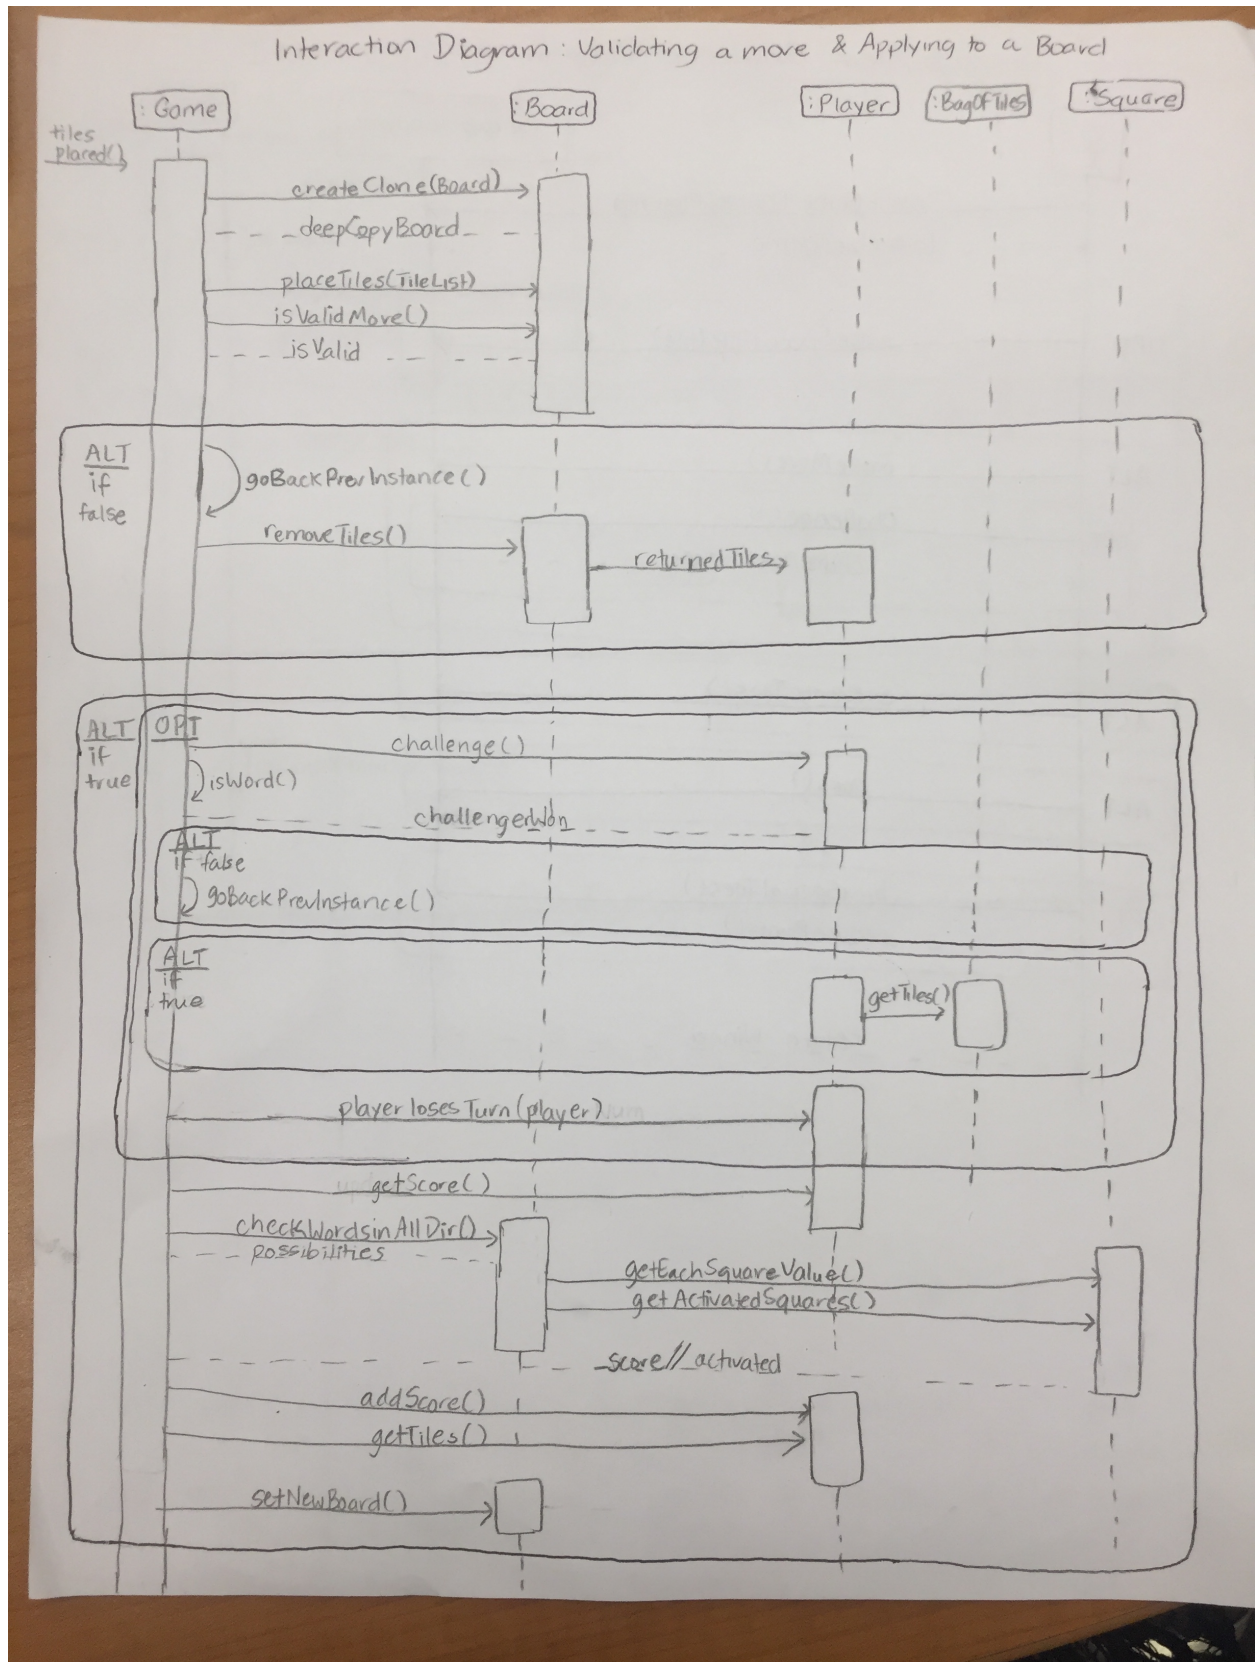 Interaction Diagram : Validating a move & Applying to a Board
: Game
: Board
: Player
: BagOfTiles
: Square
tiles
placed()
createClone(Board)
deepCopyBoard
placeTiles(TileList)
isValidMove()
isValid
ALT
if
false
goBackPrevInstance()
removeTiles()
returnedTiles
ALT
if
true
OPT
challenge()
isWord()
challengerWon
ALT
if false
goBackPrevInstance()
ALT
if
true
getTiles()
playerlosesTurn(player)
getScore()
checkWordsinAllDir()
possibilities
getEachSquareValue()
getActivatedSquares()
score//activated
addScore()
getTiles()
setNewBoard()